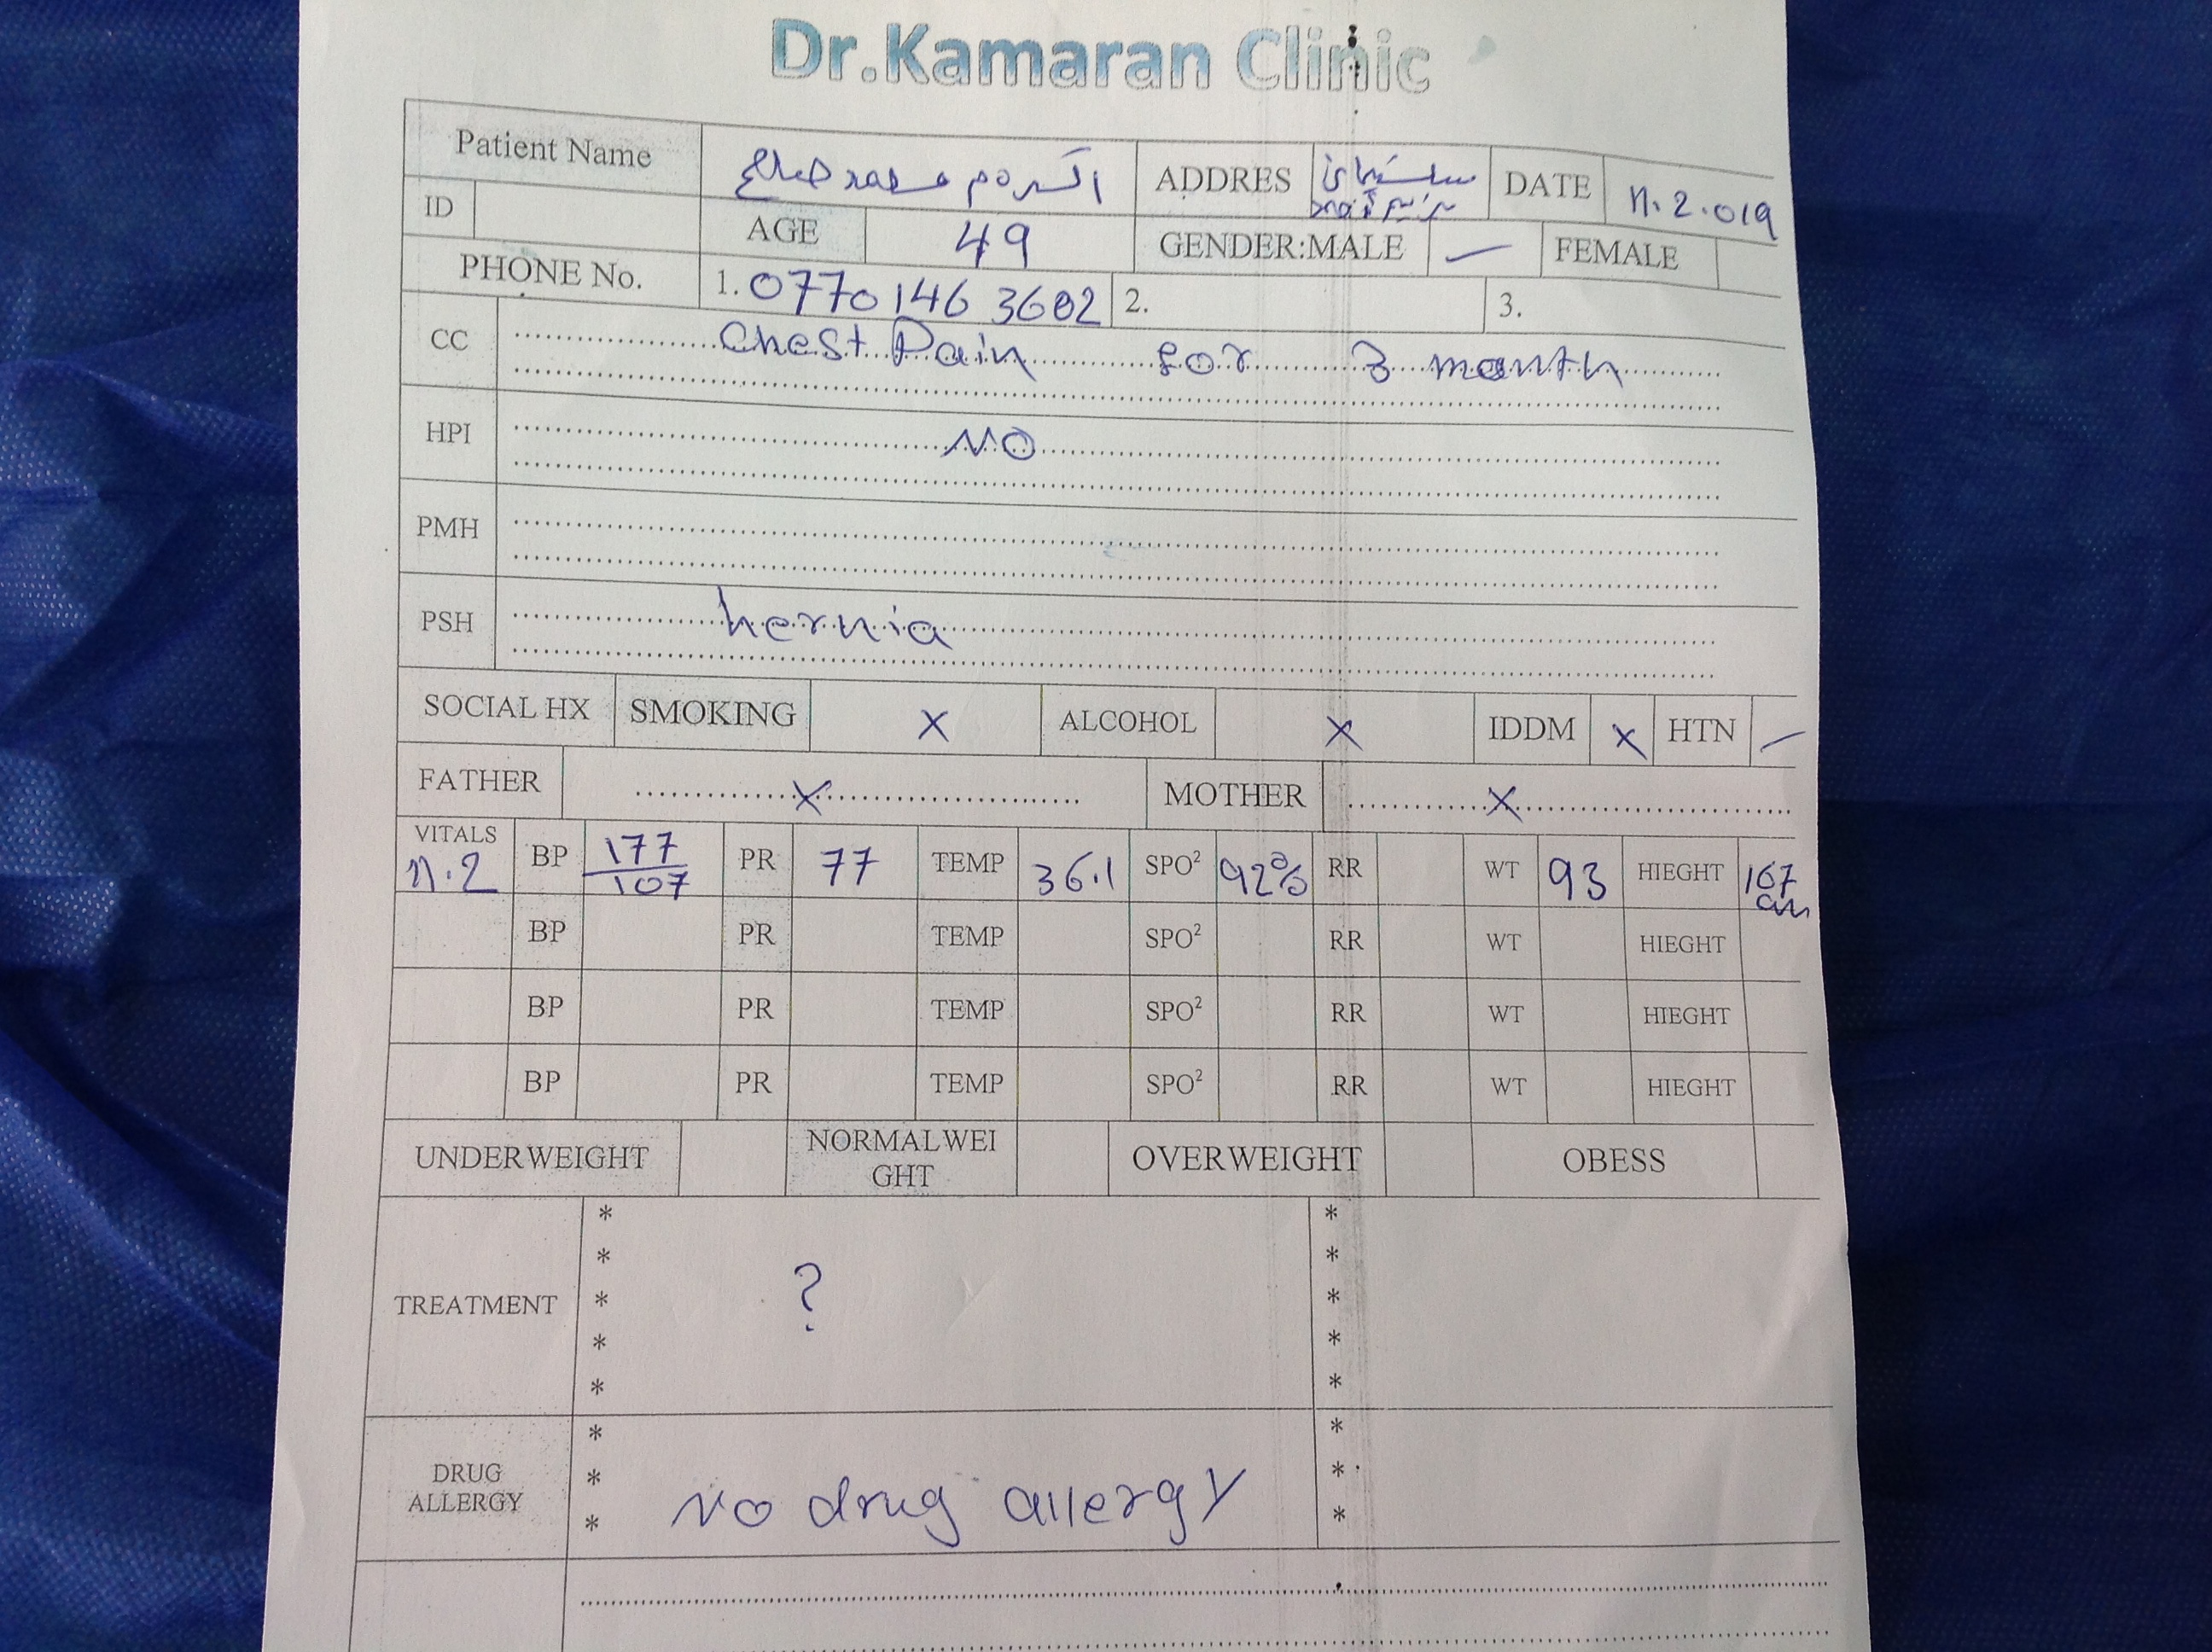 Dr.Kamaran Clinic
Patient Name اکرم محمد صالح ADDRES سلیمانی DATE 11.2.019
ID AGE 49 GENDER:MALE — FEMALE
PHONE No. 1. 0770 146 3602 2. 3.
CC chest Pain for 3 month
HPI NO
PMH
PSH hernia
SOCIAL HX SMOKING X ALCOHOL X IDDM X HTN —
FATHER X MOTHER X
VITALS 11.2 BP 177/107 PR 77 TEMP 36.1 SPO² 92% RR WT 93 HIEGHT 167 cm
BP PR TEMP SPO² RR WT HIEGHT
BP PR TEMP SPO² RR WT HIEGHT
BP PR TEMP SPO² RR WT HIEGHT
UNDERWEIGHT NORMALWEI
GHT OVERWEIGHT OBESS
TREATMENT ?
DRUG
ALLERGY No drug allergy